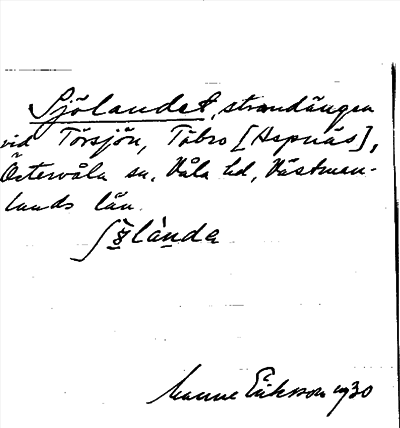 Sjölandet, strandängen
vid Törsjön, Täbro [Aspnäs],
Östervåla sn, Våla hd, Västman-
lands län.
Manne Eriksson 1930